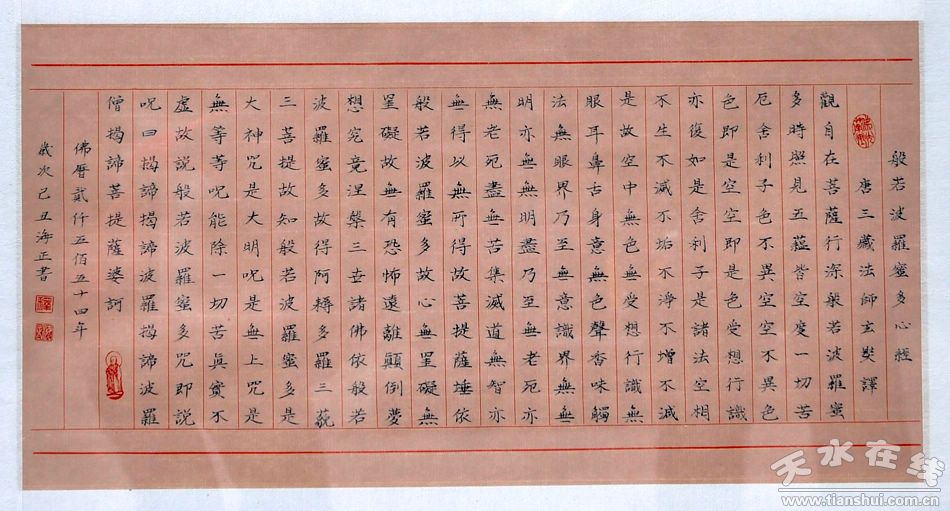 般若波羅蜜多心經
唐三藏法師玄奘譯
觀自在菩薩行深般若波羅蜜
多時照見五蘊皆空度一切苦
厄舍利子色不異空空不異色
色即是空空即是色受想行識
亦復如是舍利子是諸法空相
不生不滅不垢不淨不增不減
是故空中無色無受想行識無
眼耳鼻舌身意無色聲香味觸
法無眼界乃至無意識界無無
明亦無無明盡乃至無老死亦
無老死盡無苦集滅道無智亦
無得以無所得故菩提薩埵依
般若波羅蜜多故心無罣礙無
罣礙故無有恐怖遠離顛倒夢
想究竟涅槃三世諸佛依般若
波羅蜜多故得阿耨多羅三藐
三菩提故知般若波羅蜜多是
大神咒是大明呪是無上咒是
無等等呪能除一切苦真實不
虛故説般若波羅蜜多咒即説
呪曰揭諦揭諦波羅揭諦波羅
僧揭諦菩提薩婆訶
佛曆貳仟五佰五十四年
歲次己丑海正書
天水在线
www.tianshui.com.cn